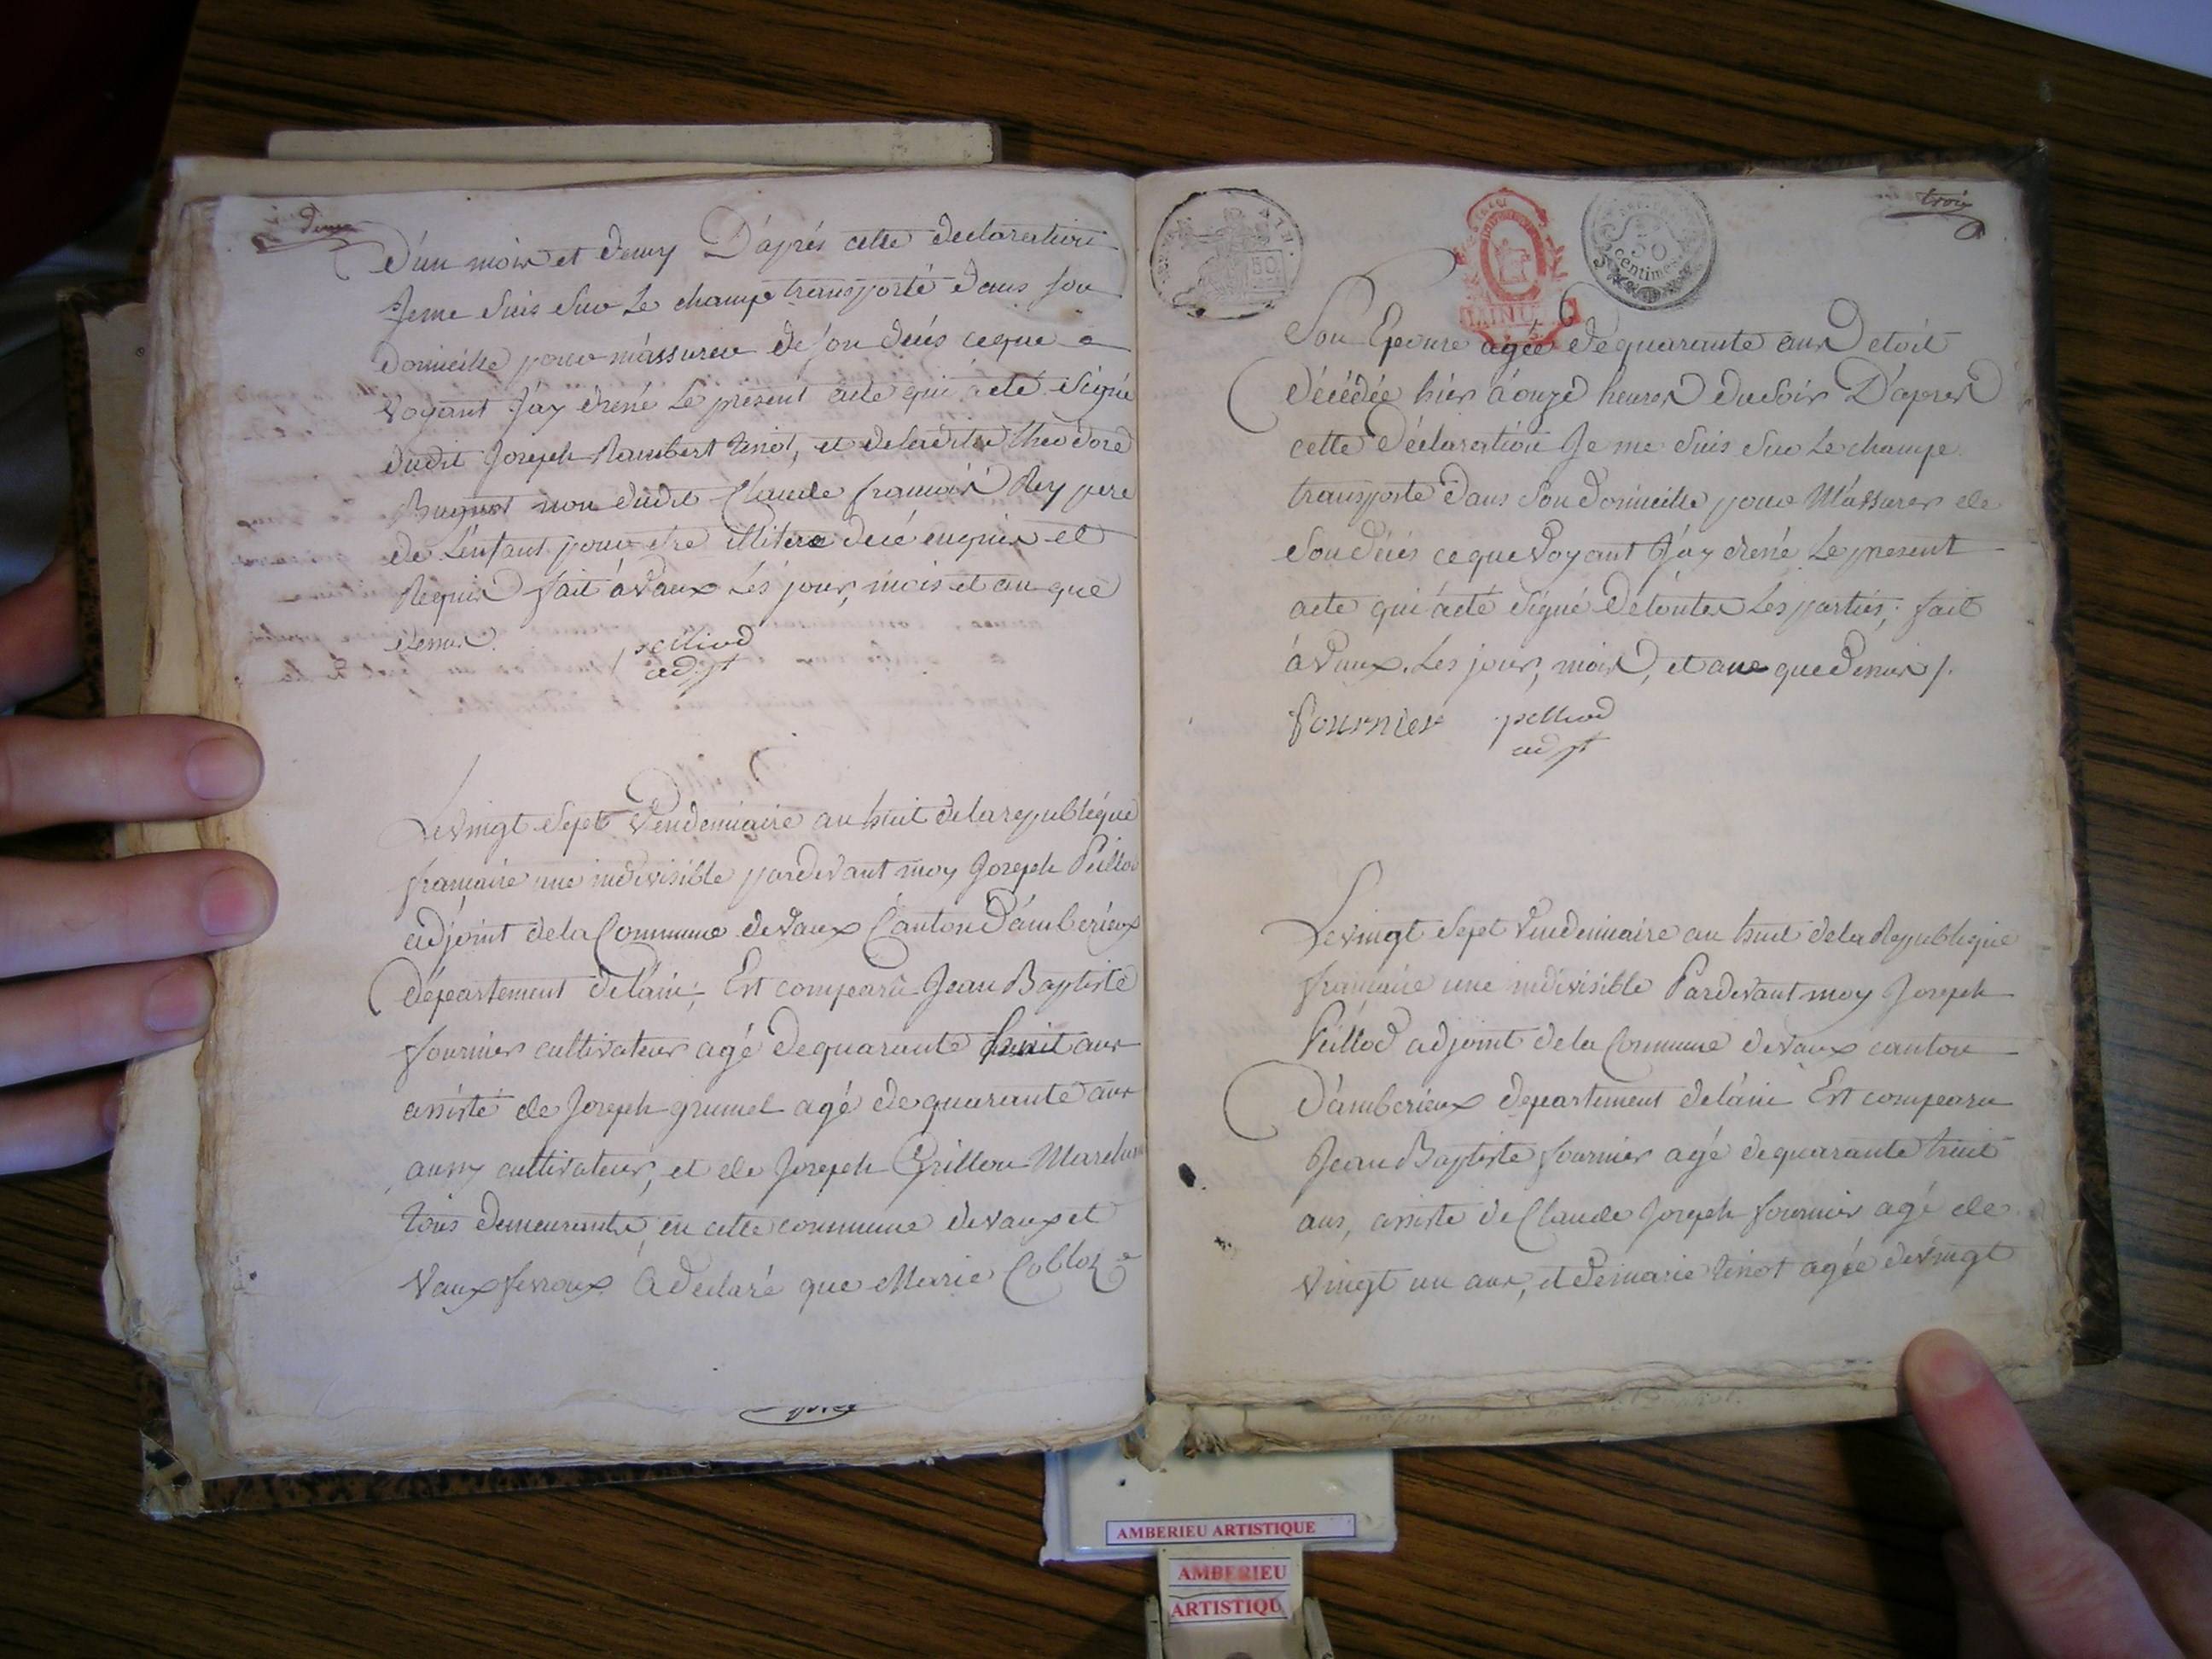 deux
D'un mois et demy D'après cette declaration
Je me suis sur Le champ transporté dans son
domicille pour m'assurer de son décés ce que
voyant J'ay dressé Le présent acte qui a eté signé
dudit Joseph Rambert tenot, et de la dite theodore
Bugnot non dudit Claude françois Rey pere
de L'enfant pour etre illitere de ce enquis et
Requis fait à Vaux Les jour, mois et an que
dessus.
peilliod
adjt
Le vingt sept Vendemiaire an huit de la republique
françaire une indivisible pardevant moy Joseph Peillod
adjoint de la Commune de Vaux Canton D'amberieux
Département de l'ain; Est comparu Jean Baptiste
fournier cultivateur agé de quarante huit ans
assisté de Joseph grumel agé de quarante ans
aussy cultivateur, et de Joseph Grillon
tous demeurants en cette commune de Vaux et
Vaux fevroux A declaré que Marie
troix
50
50
centimes
AIN
Son Epouse agée de quarante ans etoit
décédée hier à onze heures du soir D'apres
cette Déclaration Je me suis sur Le champ
transporté dans son domicille pour M'assurer de
son décés ce que voyant J'ay dressé Le present
acte qui a eté signé de toutes Les parties; fait
à Vaux. Les jour, mois, et an que dessus /.
fournier peilliod
adjt
Le vingt sept Vendemiaire an huit de la Republique
françaire une indivisible Pardevant moy Joseph
Peillod adjoint de la Commune de Vaux canton
D'amberieux departement de l'ain Est comparu
Jean Baptiste fournier agé de quarante huit
ans, assisté de Claude Joseph fournier agé de
vingt un ans, et de marie tenot agée de vingt
AMBERIEU ARTISTIQUE
AMBERIEU
ARTISTIQU